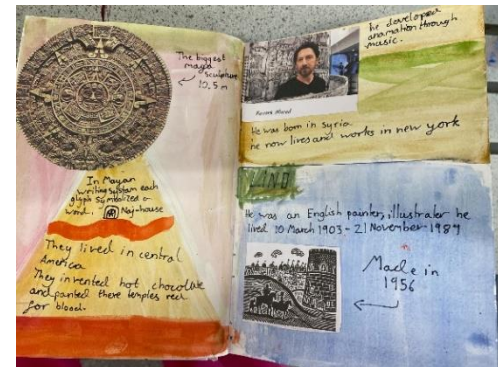 The biggest
maya
sculpture
10,5 m
In Mayan
writing system each
glyph symbolized a
word. Naj-house
They lived in central
America
They invented hot chocolate
and panted there temples red
for blood.
he developed
anamation through
music.
Kevork Mourad
He was born in syria
he now lives and works in new york
LINO
He was an English painter, illustrater he
lived 10 March 1903 - 21 November 1989
Made in
1956